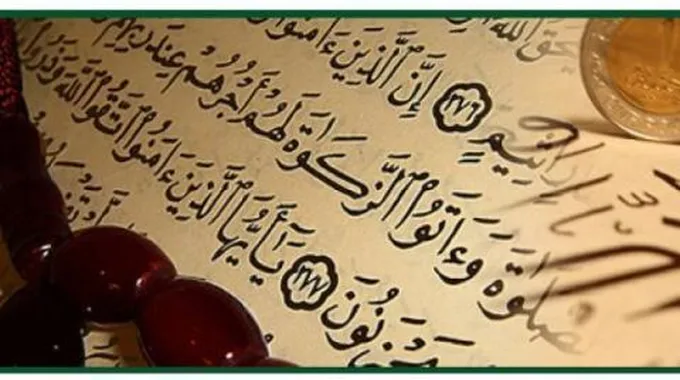 يَمْحَقُ ٱللَّهُ
أَثِيمٍ ٢٧٦ إِنَّ ٱلَّذِينَ ءَامَنُوا۟
ٱلصَّلَوٰةَ وَءَاتَوُا۟ ٱلزَّكَوٰةَ لَهُمْ أَجْرُهُمْ عِندَ رَبِّهِمْ
يَحْزَنُونَ ٢٧٧ يَـٰٓأَيُّهَا ٱلَّذِينَ ءَامَنُوا۟ ٱتَّقُوا۟ ٱللَّهَ وَذَرُوا۟